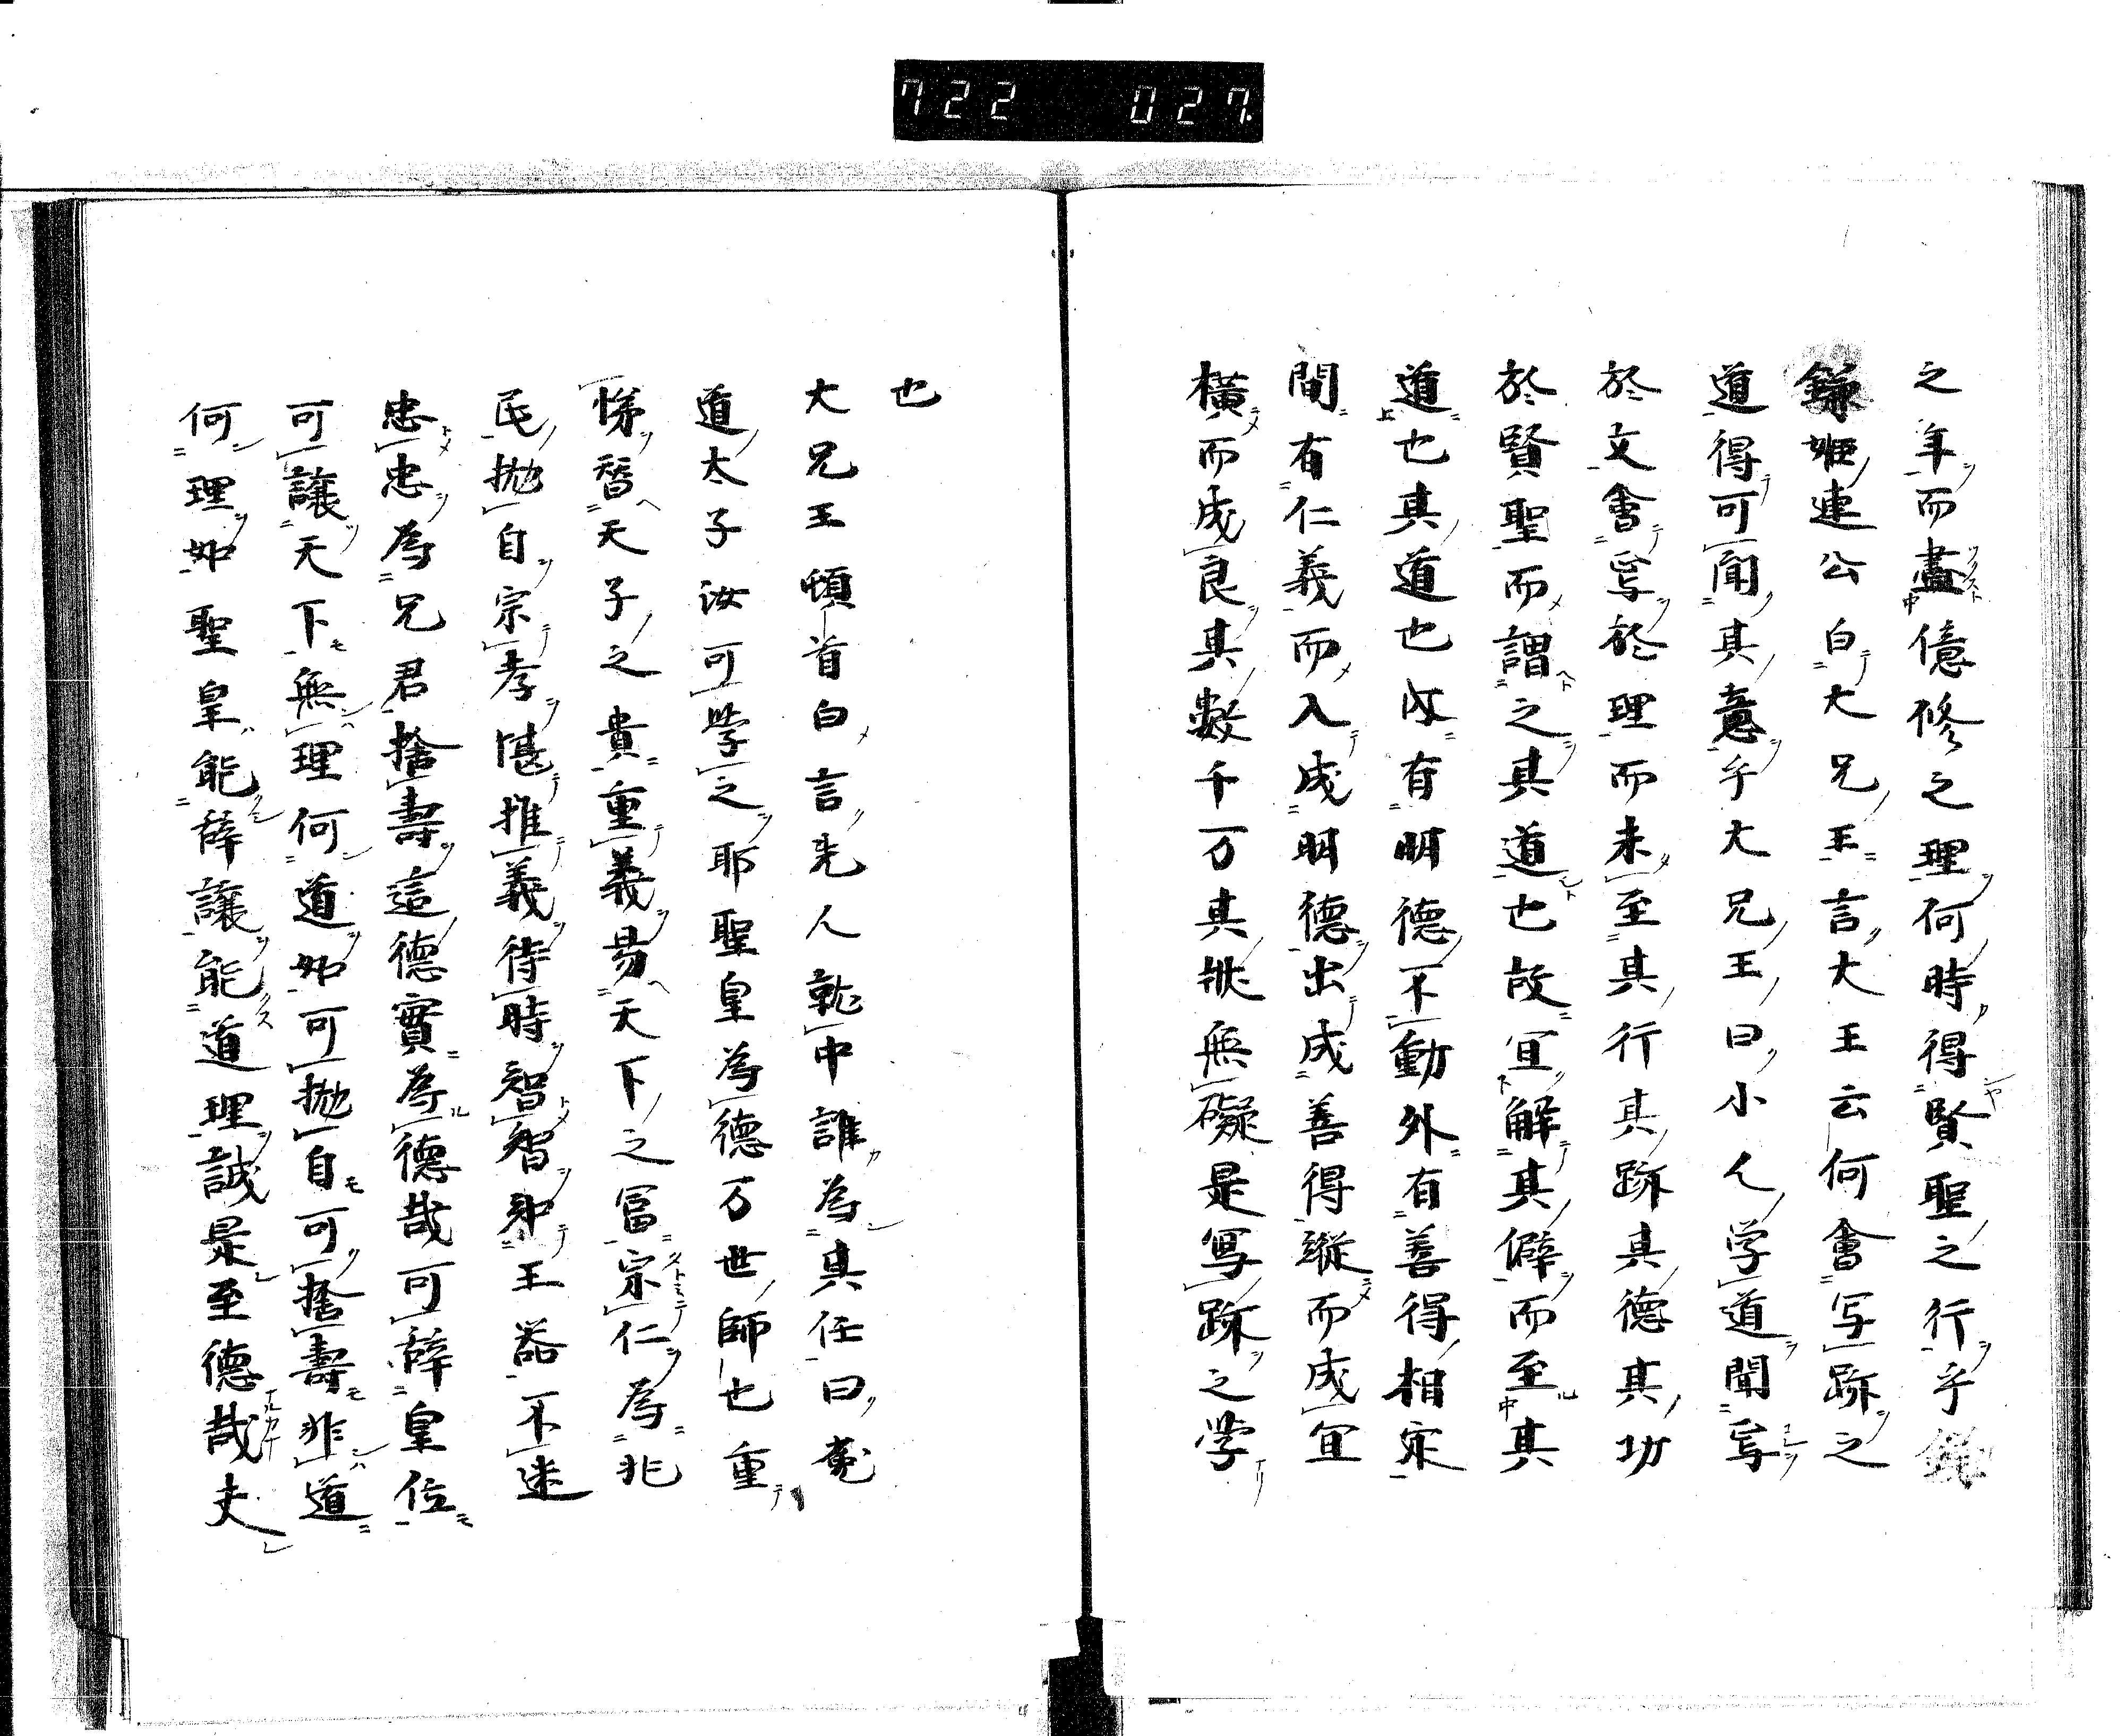 722 027
之年而盡億修之理何時得賢聖之行乎
鎌姬連公白大兄王言大王云何會写跡之
道得可聞其意乎大兄王曰小人学道聞写
於文會写於理而未至其行其跡其德其功
於賢聖而謂之其道也故宜解其僻而至其
道也其道也内有明德不動外有善得相宗
間有仁義而入成明德出成善得縱而成宜
橫而成良其數千万其無礙是写跡之学
也
大兄王頓首白言先人就中誰為其任曰
道太子汝可學之耶聖皇為德万世師也重
悌替天子之貴重義易天下之冨宗仁為非
民抛自宗孝堪推義待時智智却王器不迷
忠忠為兄君捨壽這德實為德哉可辞皇位
可讓天下無理何道如可抛自可捨壽非道
何理如聖皇能辞讓能道理誠是至德哉夫